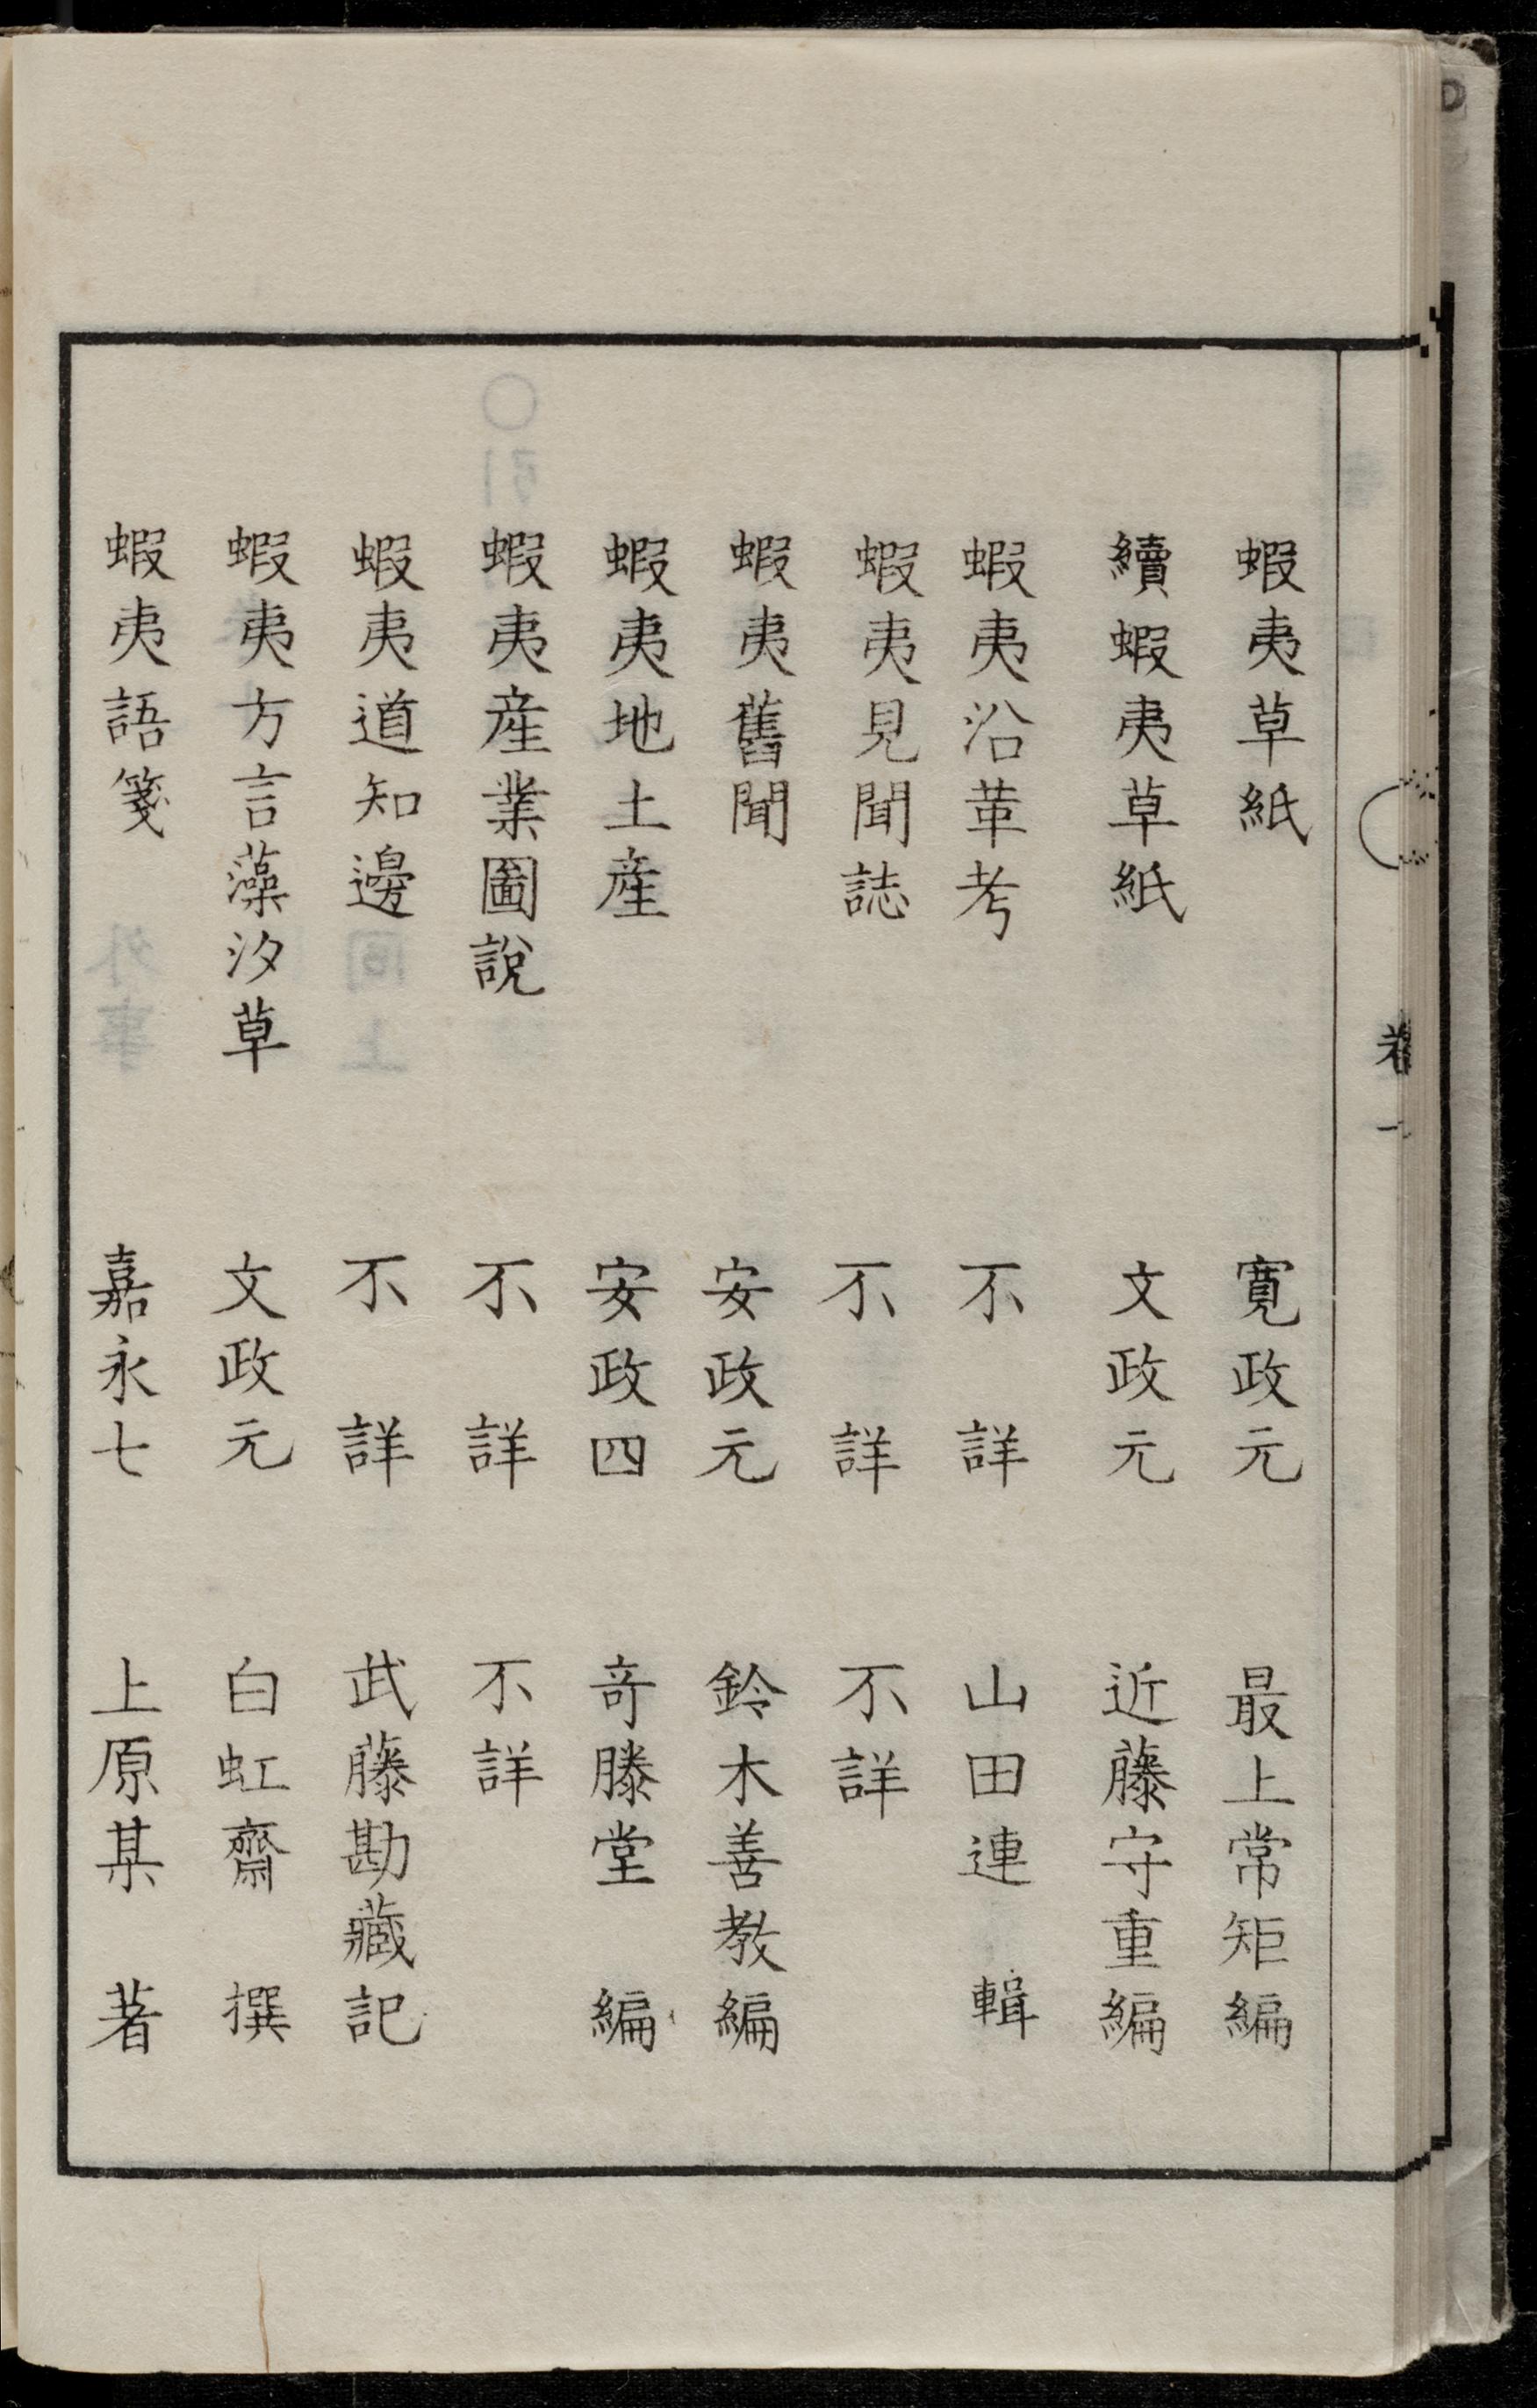 蝦夷草紙 寛政元 最上常矩編
續蝦夷草紙 文政元 近藤守重編
蝦夷沿革考 不詳 山田連輯
蝦夷見聞誌 不詳 不詳
蝦夷舊聞 安政元 鈴木善教編
蝦夷地土産 安政四 竒滕堂編
蝦夷産業圖說 不詳 不詳
蝦夷道知邊 不詳 武藤勘藏記
蝦夷方言藻汐草 文政元 白虹齋撰
蝦夷語箋 嘉永七 上原某著
卷一